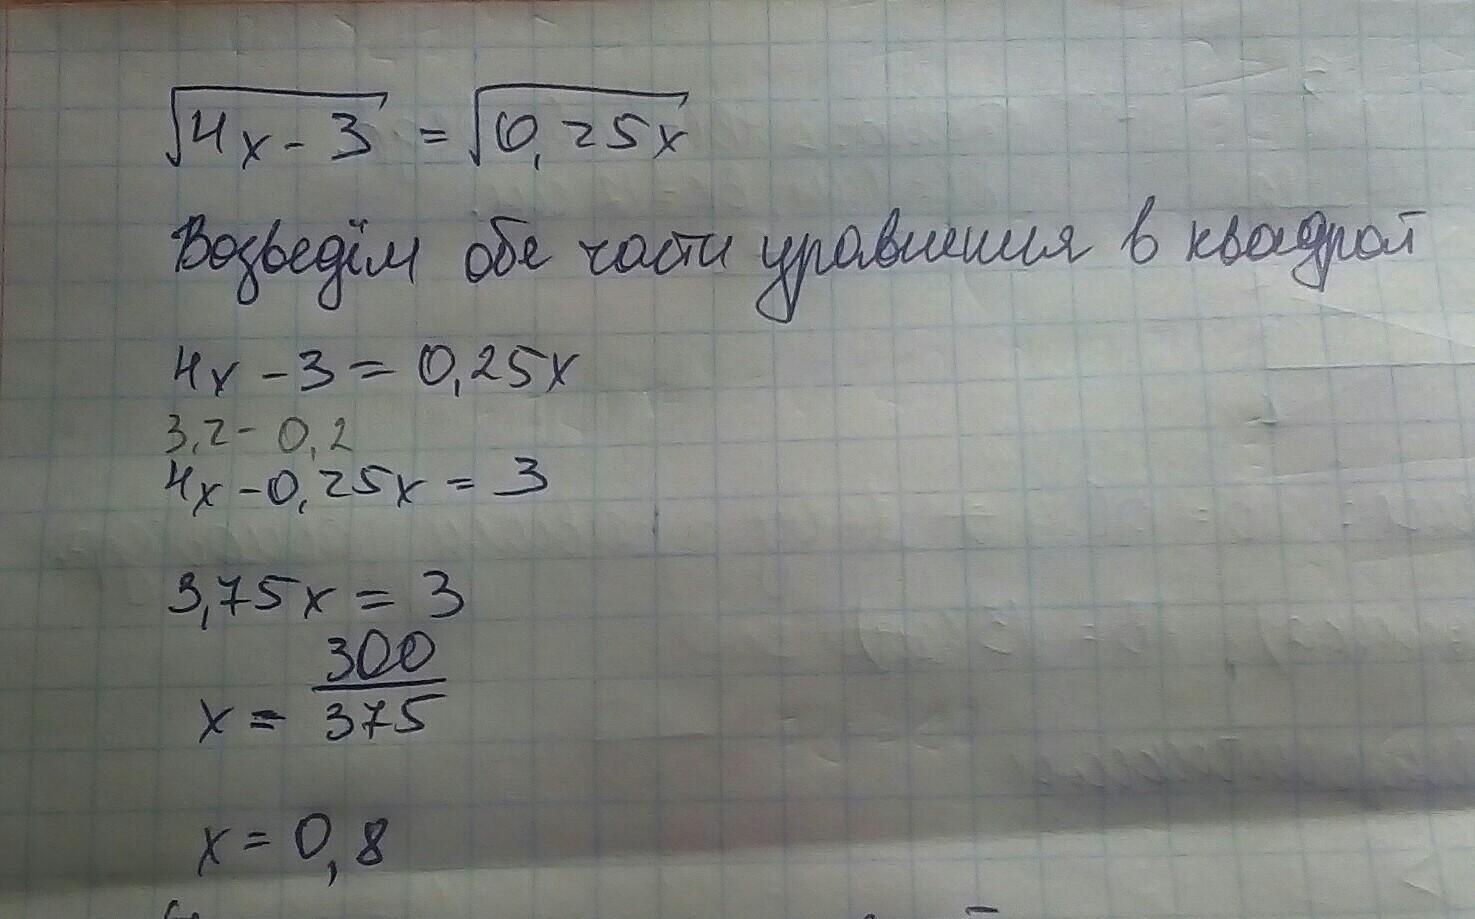 √4x - 3 = √0,25x
Возведём обе части уравнения в квадрат
4x - 3 = 0,25x
3,2 - 0,2
4x - 0,25x = 3
3,75x = 3
x = 300/375
x = 0,8